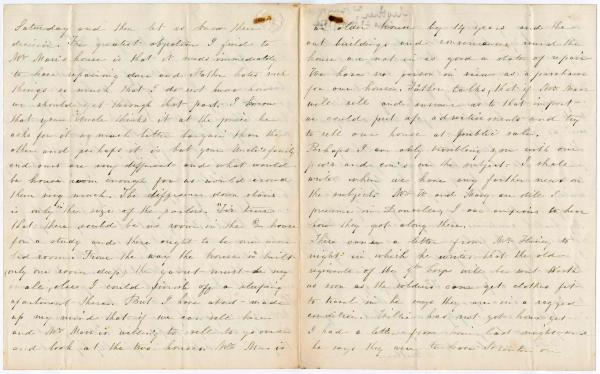 Saturday and then let us know their
decision. The greatest objection I find to
Mr Man's house is that it needs immediately
to have repairing done and Father hates such
things so much that I do not know how
we should get through that part. I know
that your Uncle thinks it at the price he
asks for it as much better bargain than the
other and perhaps it is but your Uncle's family
and ours are very different and what would
be house room enough for us would
them very much. The difference down stairs
is only the size of the parlor. 'Tis true
that there would be no room in the house
for a study and there ought to be one more
bed room. From the way the house is built
only one room deep the garret must be very
small, else I could finish off a sleeping
apartment there. But I have about made
up my mind that if we can sell here
and Mr Man is willing to sell to go on
and look at the two houses. Mr Man is
an older house by 14 years and the
out buildings and conveniences round the
house are not in as good a state of repair
We have no person in view as a purchaser
for our house. Father talks, that if Mr Man
will sell and answers us to that import
we could put up advertisements and try
to sell our house at public sale.
Perhaps I am only troubling you with our
pro's and con's on the subject. I shall
write when we have any further news on
the subject. Mr W and Mary are still I
presume in I am anxious to hear
how they get along there.
There comes a letter from Mr to
night in which he writes that the old
regiments of the 9th Corps will be sent North
as soon as the soldiers can get clothes fit
to travel in he says they are in a ragged
condition. Willie has not got home yet
I had a letter from him last night and
he says they were to leave Scranton on